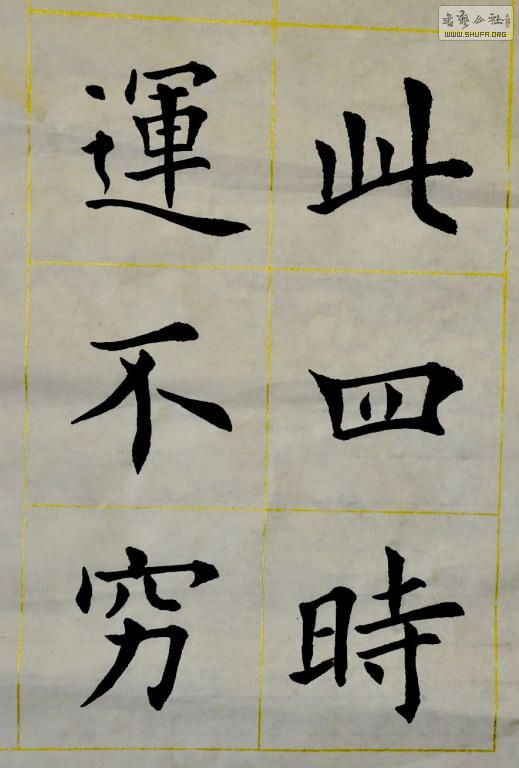 此四時
運不穷
書藝公社
WWW.SHUFA.ORG